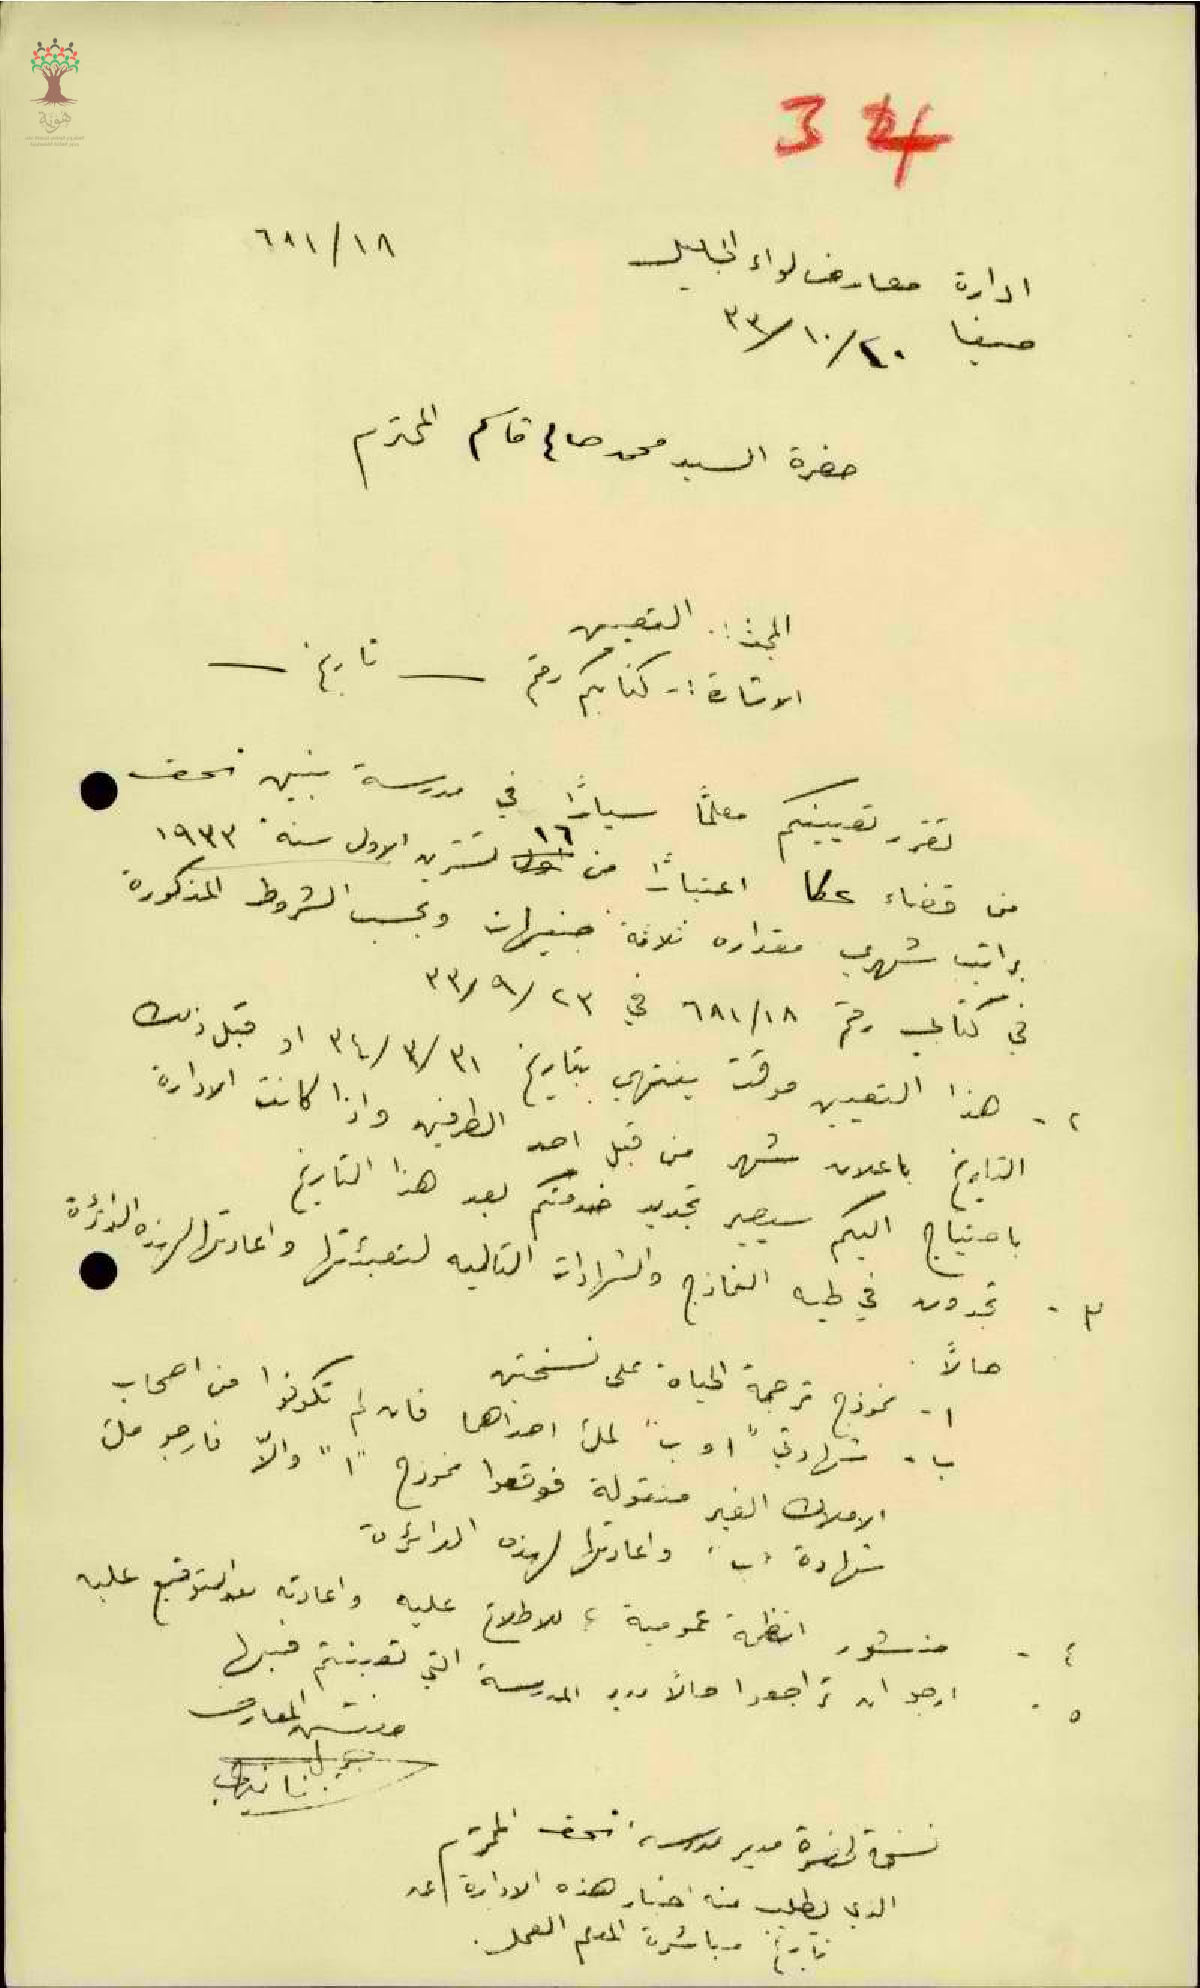 هوية
34
٦٨١/١٨
ادارة معارف لواء الجليل
حيفا ٢٠/١٠/٣٣
حضرة السيد محمد صالح قاسم المحترم
المبحث :. التعيين
الاشارة :- كتابكم رقم — تاريخ —
تقرر تعيينكم معلمًا سيارًا في مدرسة بنين نحف
من قضاء عكا اعتبارًا من ١٦ تشرين الاول سنة ١٩٣٣
براتب شهري مقداره ثلاثة جنيهات وبحسب الشروط المذكورة
في كتابي رقم ٦٨١/١٨ في ٢٣/٩/٣٣
٢ - هذا التعيين موقت ينتهي بتاريخ ٣١/٣/٣٤ او قبل ذلك
التاريخ باعلان شهر من قبل احد الطرفين واذا كانت الادارة
باحتياج اليكم سيصير تجديد خدمتكم بعد هذا التاريخ
٣ - تجدون في طيه النماذج والشهادات التاليه لتعبئتها واعادتها لهذه الدائرة
حالاً
ا - نموذج ترجمة الحياة على نسختين
ب - شهادتي "ا و ب" لملئ احداهما فان لم تكونوا من اصحاب
الاملاك الغير منقولة فوقعوا نموذج "ا" والاّ فارجو ملئ
شهادة "ب" واعادتها لهذه الدائرة
٤ - منشور انظمة عمومية ٤ للاطلاع عليه واعادته بعد التوقيع عليه
٥ - ارجو ان تراجعوا حالاً مدير المدرسة التي تعينتم فيها
مفتش المعارف
نسخة لحضرة مدير مدرسة نحف المحترم
الذي يطلب منه اخبار هذه الادارة عن
تاريخ مباشرة المعلم العمل.